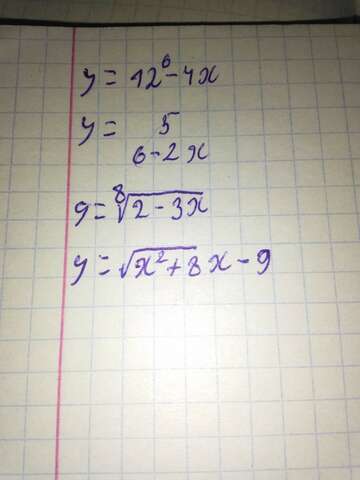 y = 12⁶ - 4x
y = 5
6 - 2x
y = ⁸√(2 - 3x)
y = √(x² + 8)x - 9